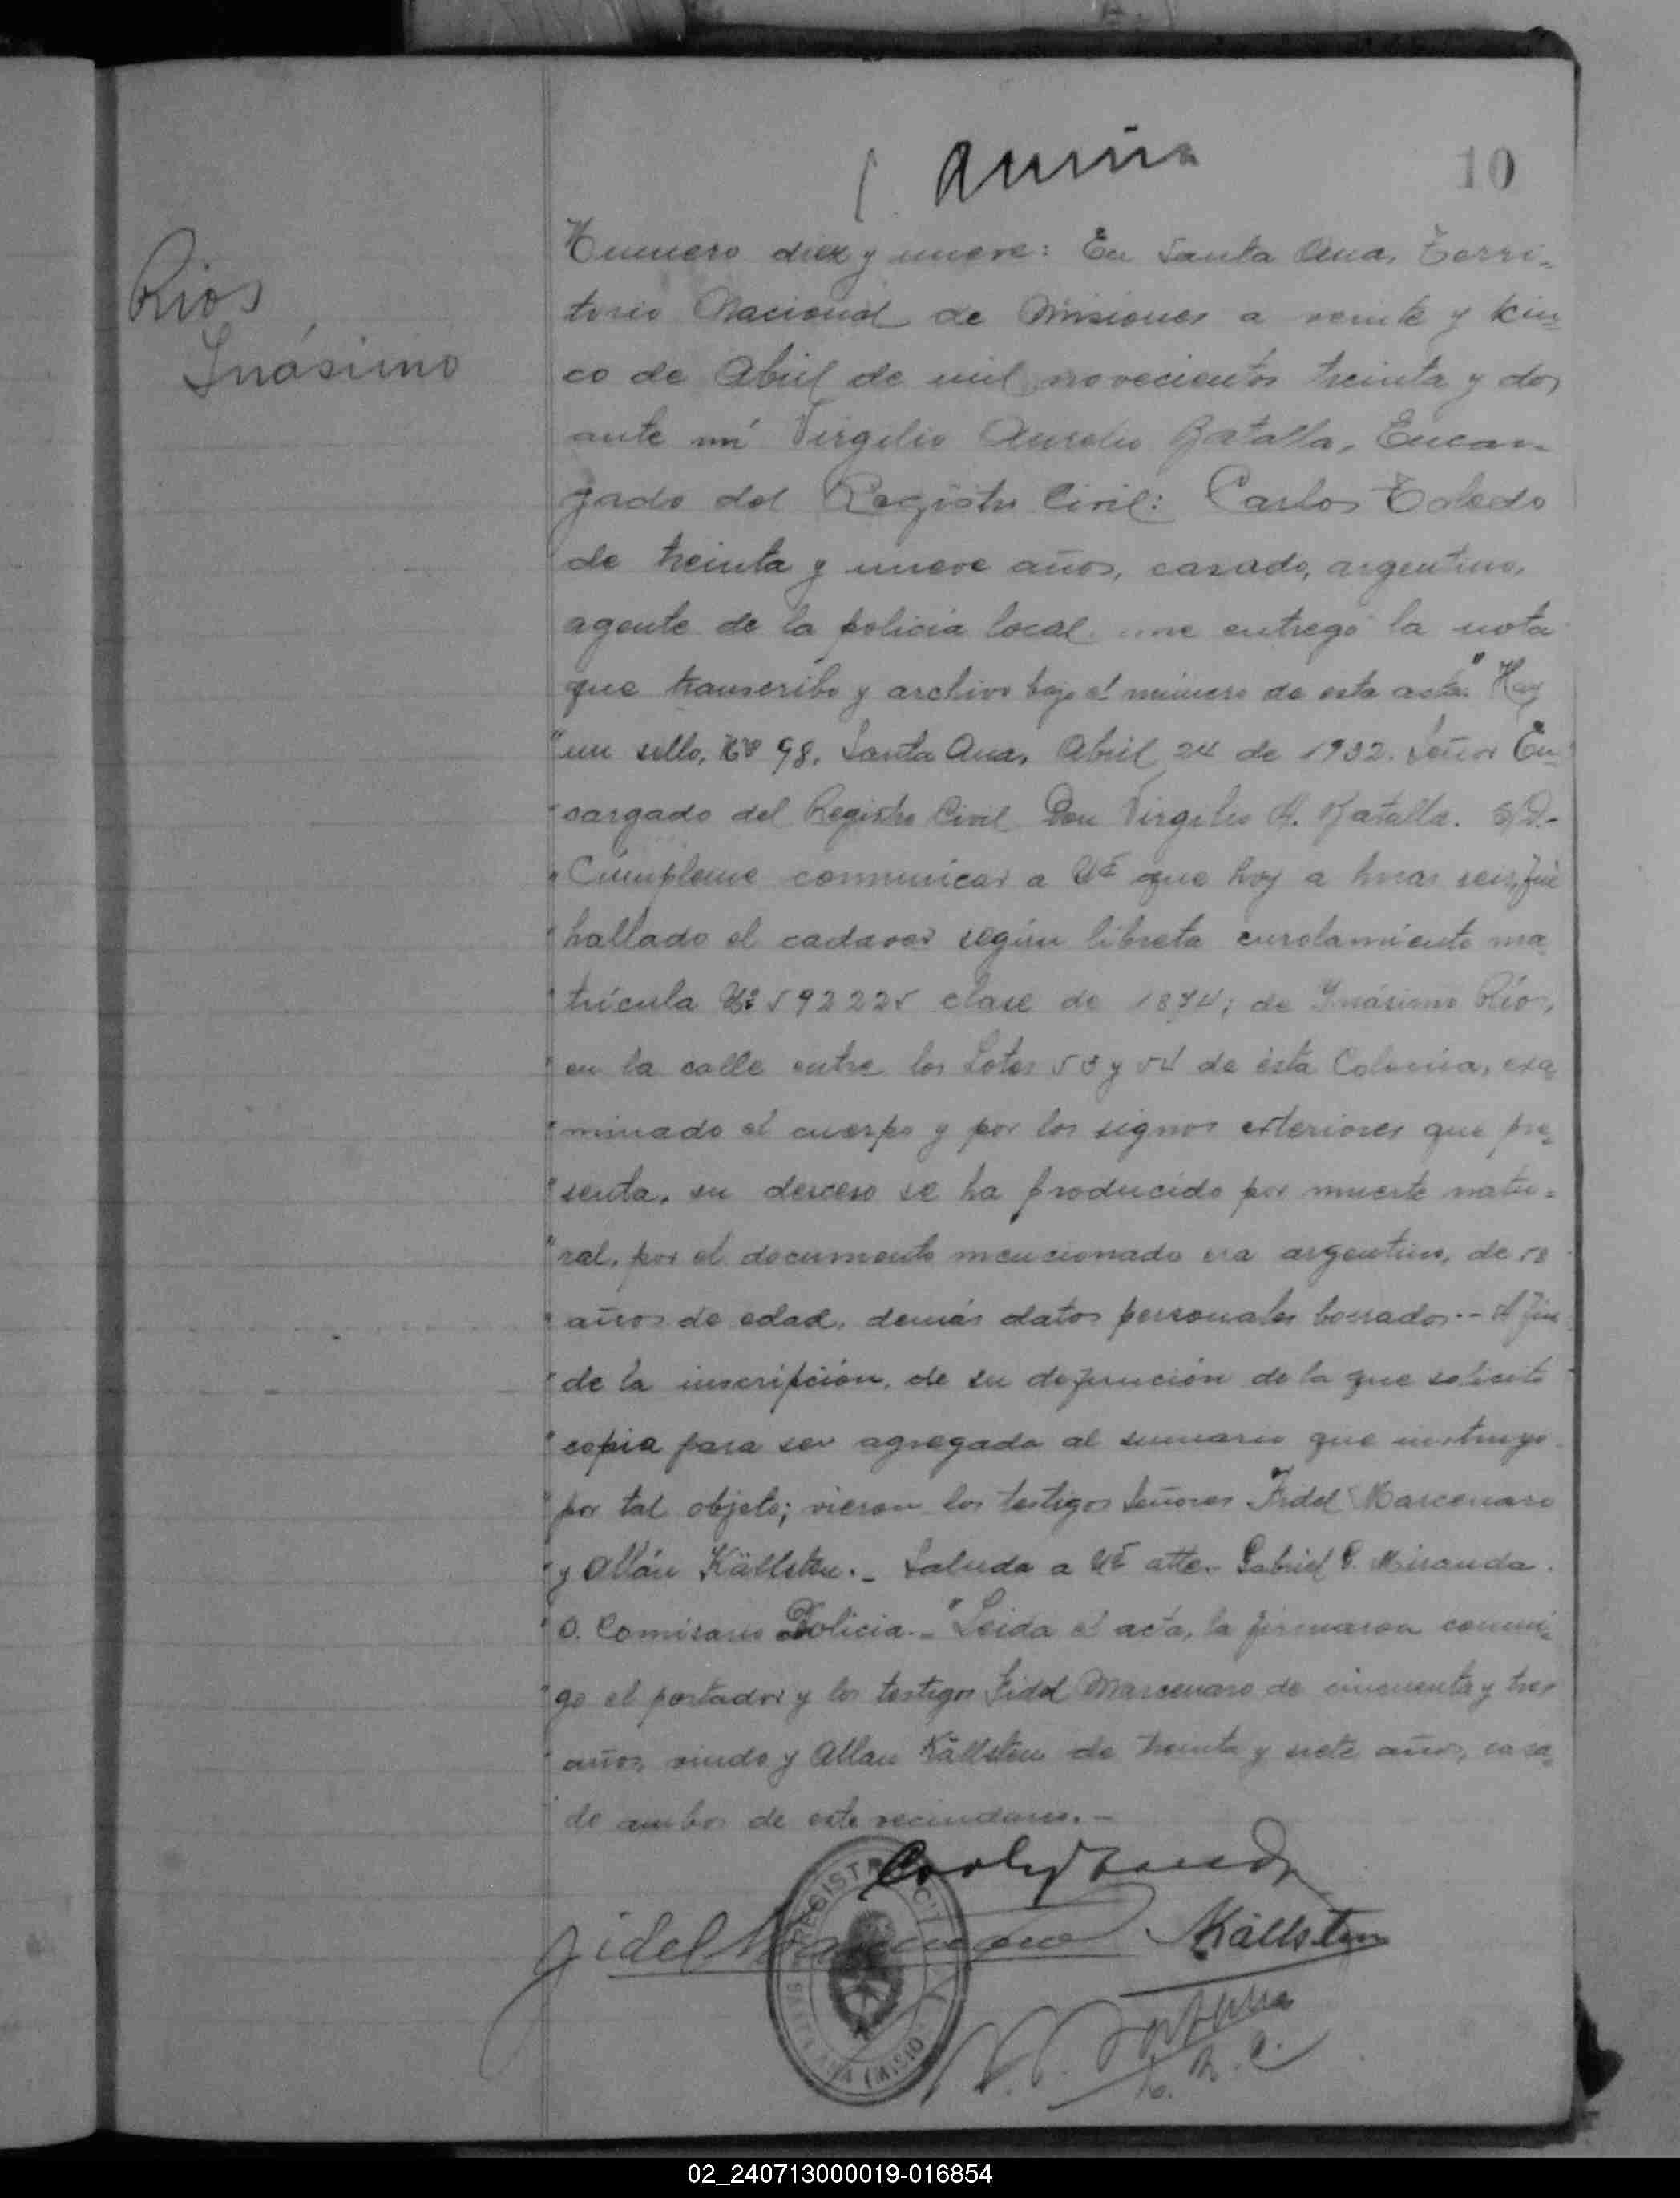 10
Rios
Inásimo
Numero diez y nueve: En Santa Ana, Terri-
torio Nacional de Misiones a veinte y cin-
co de Abril de mil novecientos treinta y dos
ante mí Virgilio Aurelio Batalla, Encar-
gado del Registro Civil: Carlos Toledo
de treinta y nueve años, casado, argentino,
agente de la policía local me entregó la nota
que transcribo y archivo bajo el número de esta acta: "Hay
"un sello, Nº 98. Santa Ana, Abril 24 de 1932. Señor En-
"cargado del Registro Civil Don Virgilio A. Batalla. S/D.-
"Cúmpleme comunicar a Ud que hoy a horas seis, fué
"hallado el cadaver según libreta enrolamiento ma-
"trícula Nº 592225 clase de 1874; de Inásimo Ríos,
"en la calle entre los Lotes 53 y 54 de ésta Colonia, exa-
"minado el cuerpo y por los signos exteriores que pre-
"senta, su deceso se ha producido por muerte natu-
"ral, por el documento mencionado era argentino, de 58
"años de edad, demás datos personales borrados.-- A fin
"de la inscripción, de su defunción de la que solicito
"copia para ser agregada al sumario que instruyo
"por tal objeto; vieron los testigos Señores Fidel Marcenaro
"y Allán Källsten.- Saluda a Ud atte. Gabriel G. Miranda.
"O. Comisario Policia.-" Leida el acta, la firmaron conmi-
go el portador y los testigos Fidel Marcenaro de cincuenta y tres
años, viudo y Allan Källsten de treinta y siete años, casa-
do ambos de este vecindario.-
Carlos Toledo
Fidel Marcenaro Källsten
V. A. Batalla
E. R. C.
REGISTRO CIVIL
SANTA ANA (MISIO
02_240713000019-016854